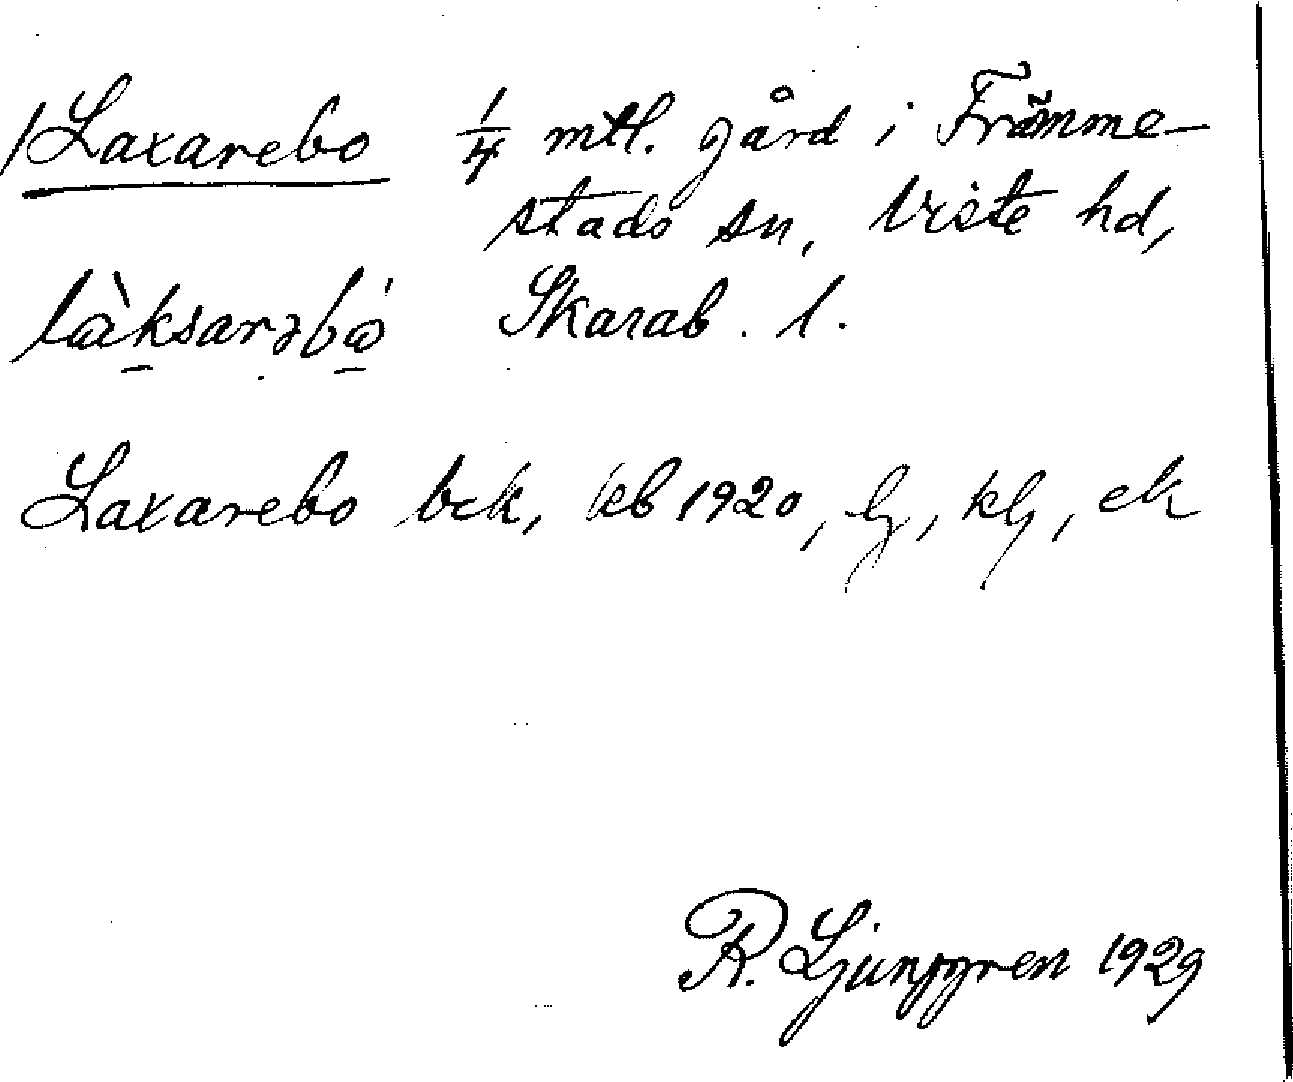 /Laxarebo 1/4 mtl. gård i Främme-
stads sn, Viste hd,
làksarəbὼ Skarab. l.
Laxarebo bck, kb 1920, lj, klj, ek
R. Ljunggren 1929